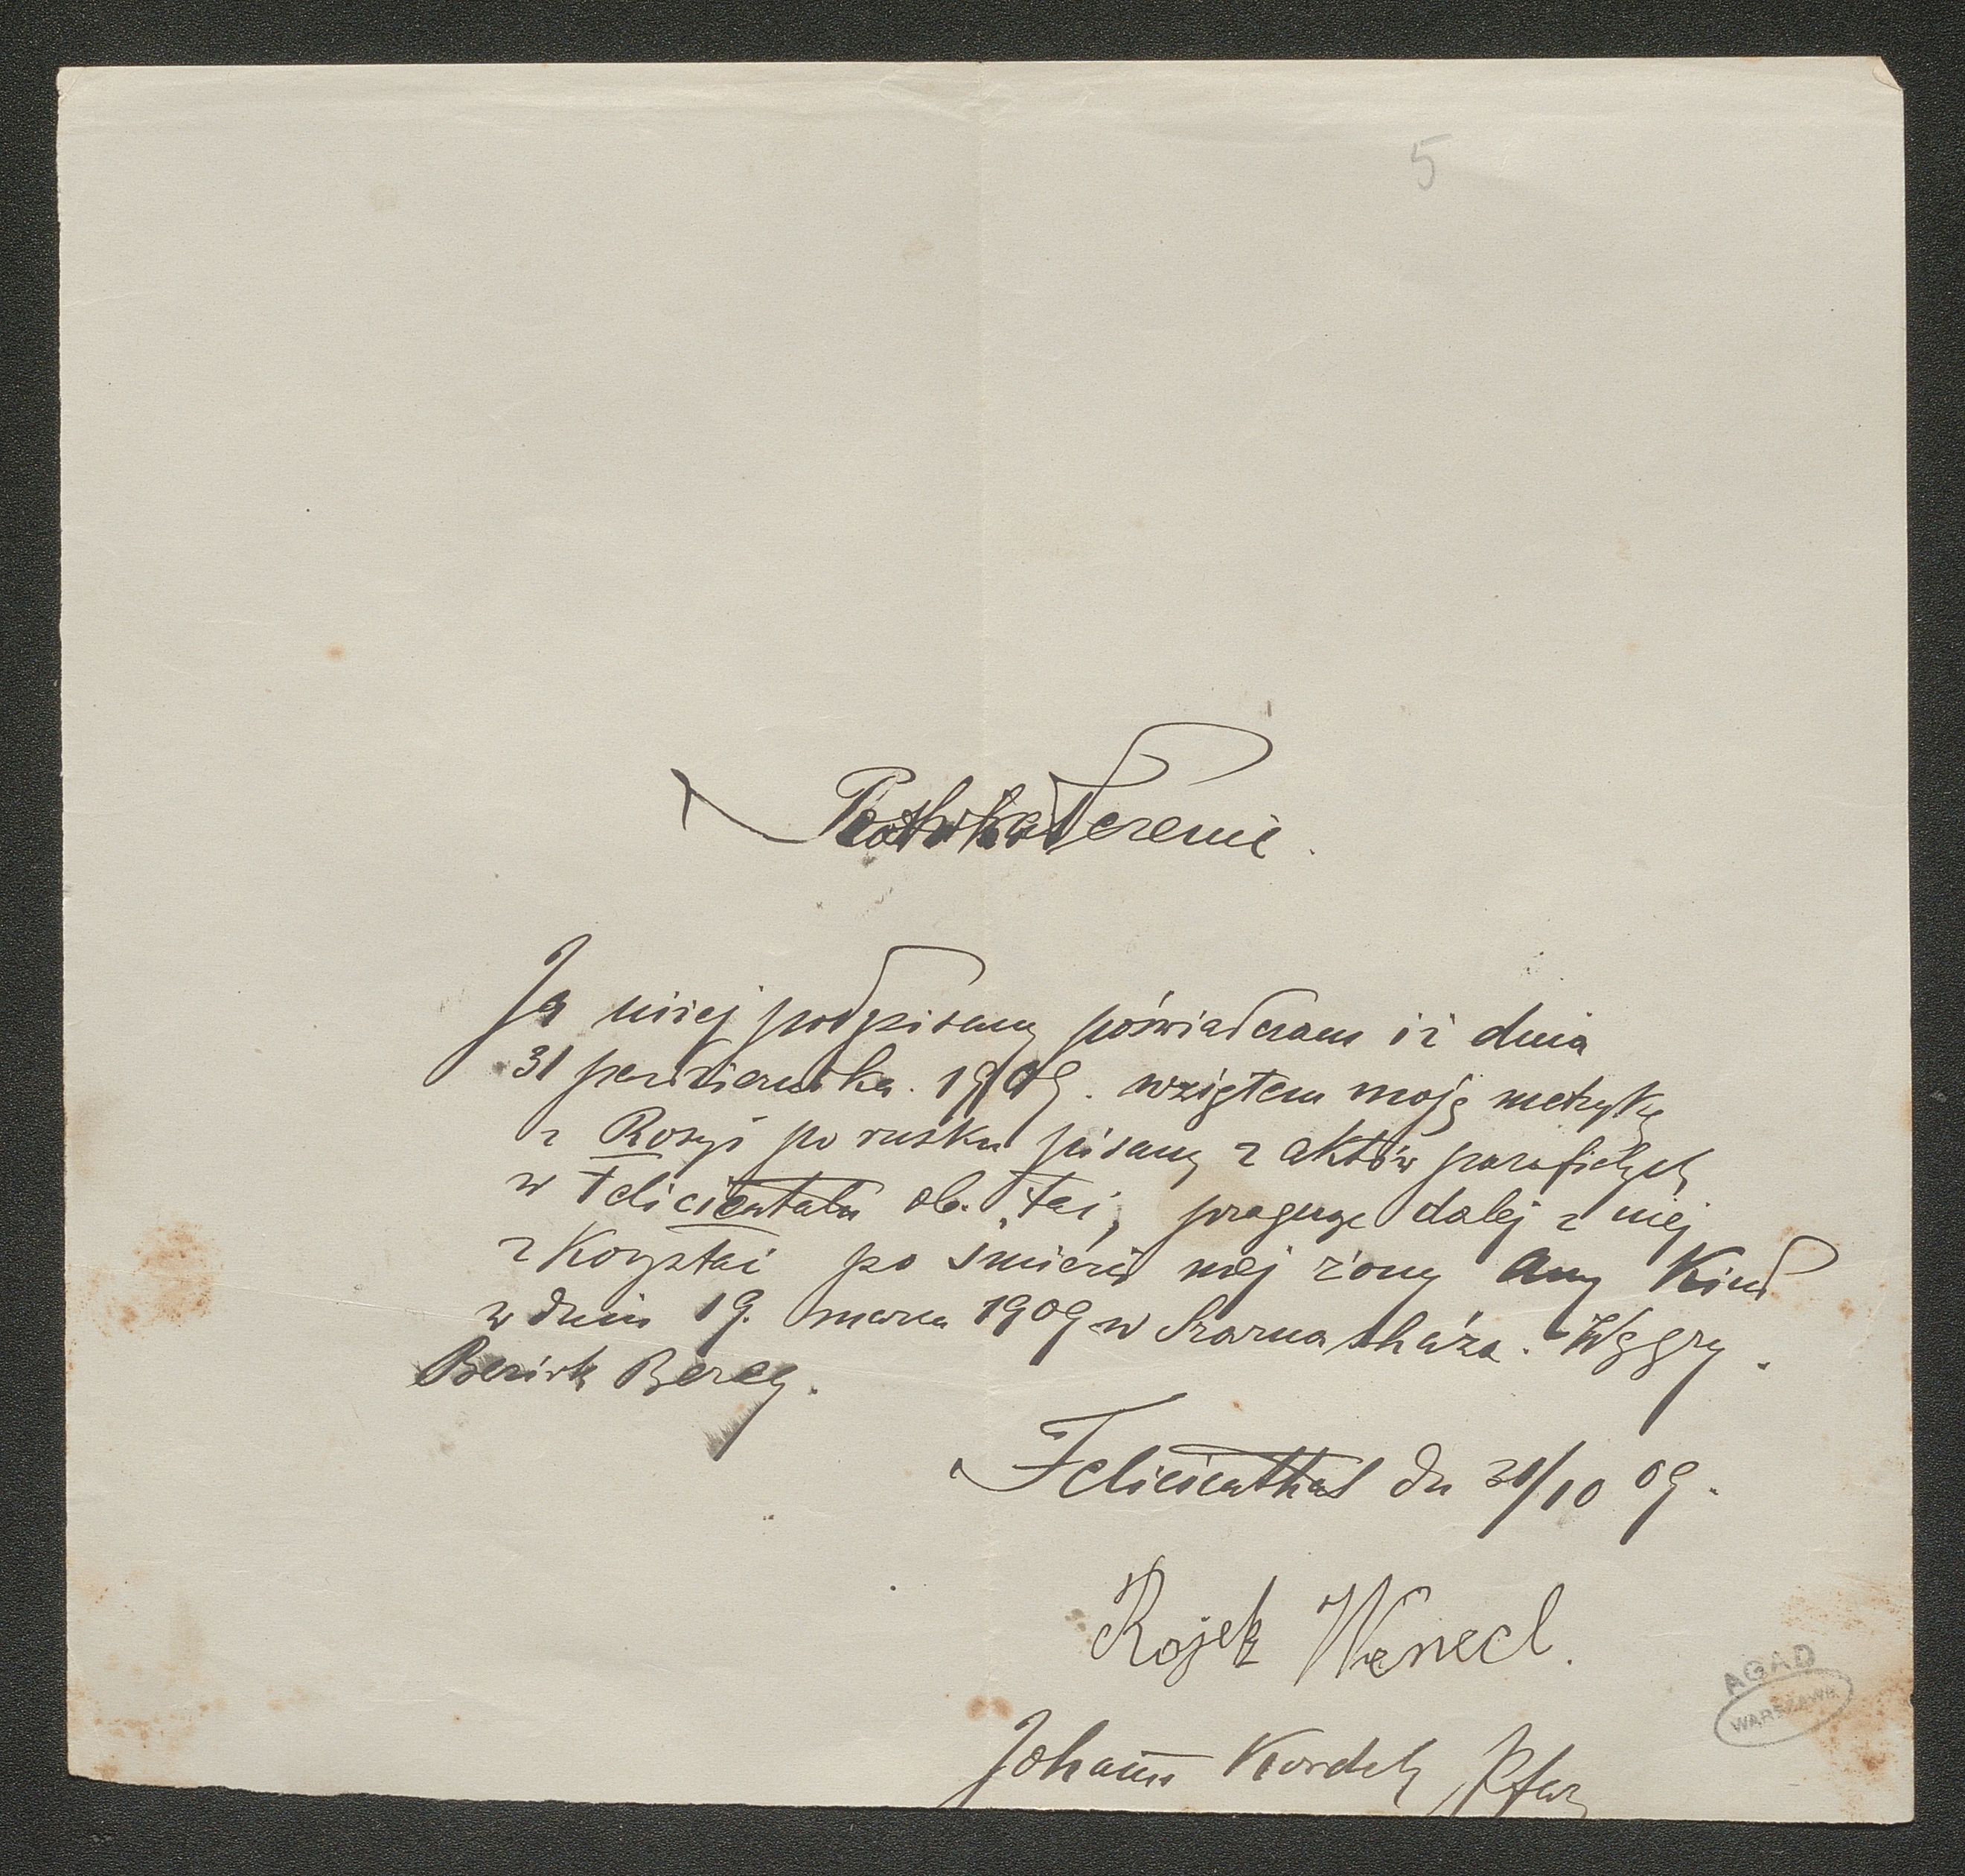 5
Poświadczenie.
Ja niżej podpisany poświadczam iż dnia
31 października. 1909. wziąłem moję metrykę
z Rosyi po rusku pisaną z aktów parafialych
w Felicientalu ob. pragnąc dalej z niej
zkorystać po śmierci mej żony Any Kind
w dniu 19. marca 1909 w Szarvasháza. - Węgry.
Bezirk Bereg.
Felicienthal dn 31/10 09.
Rojek Wenecl.
Johann Kordek Pfar
AGAD
WARSZAWA